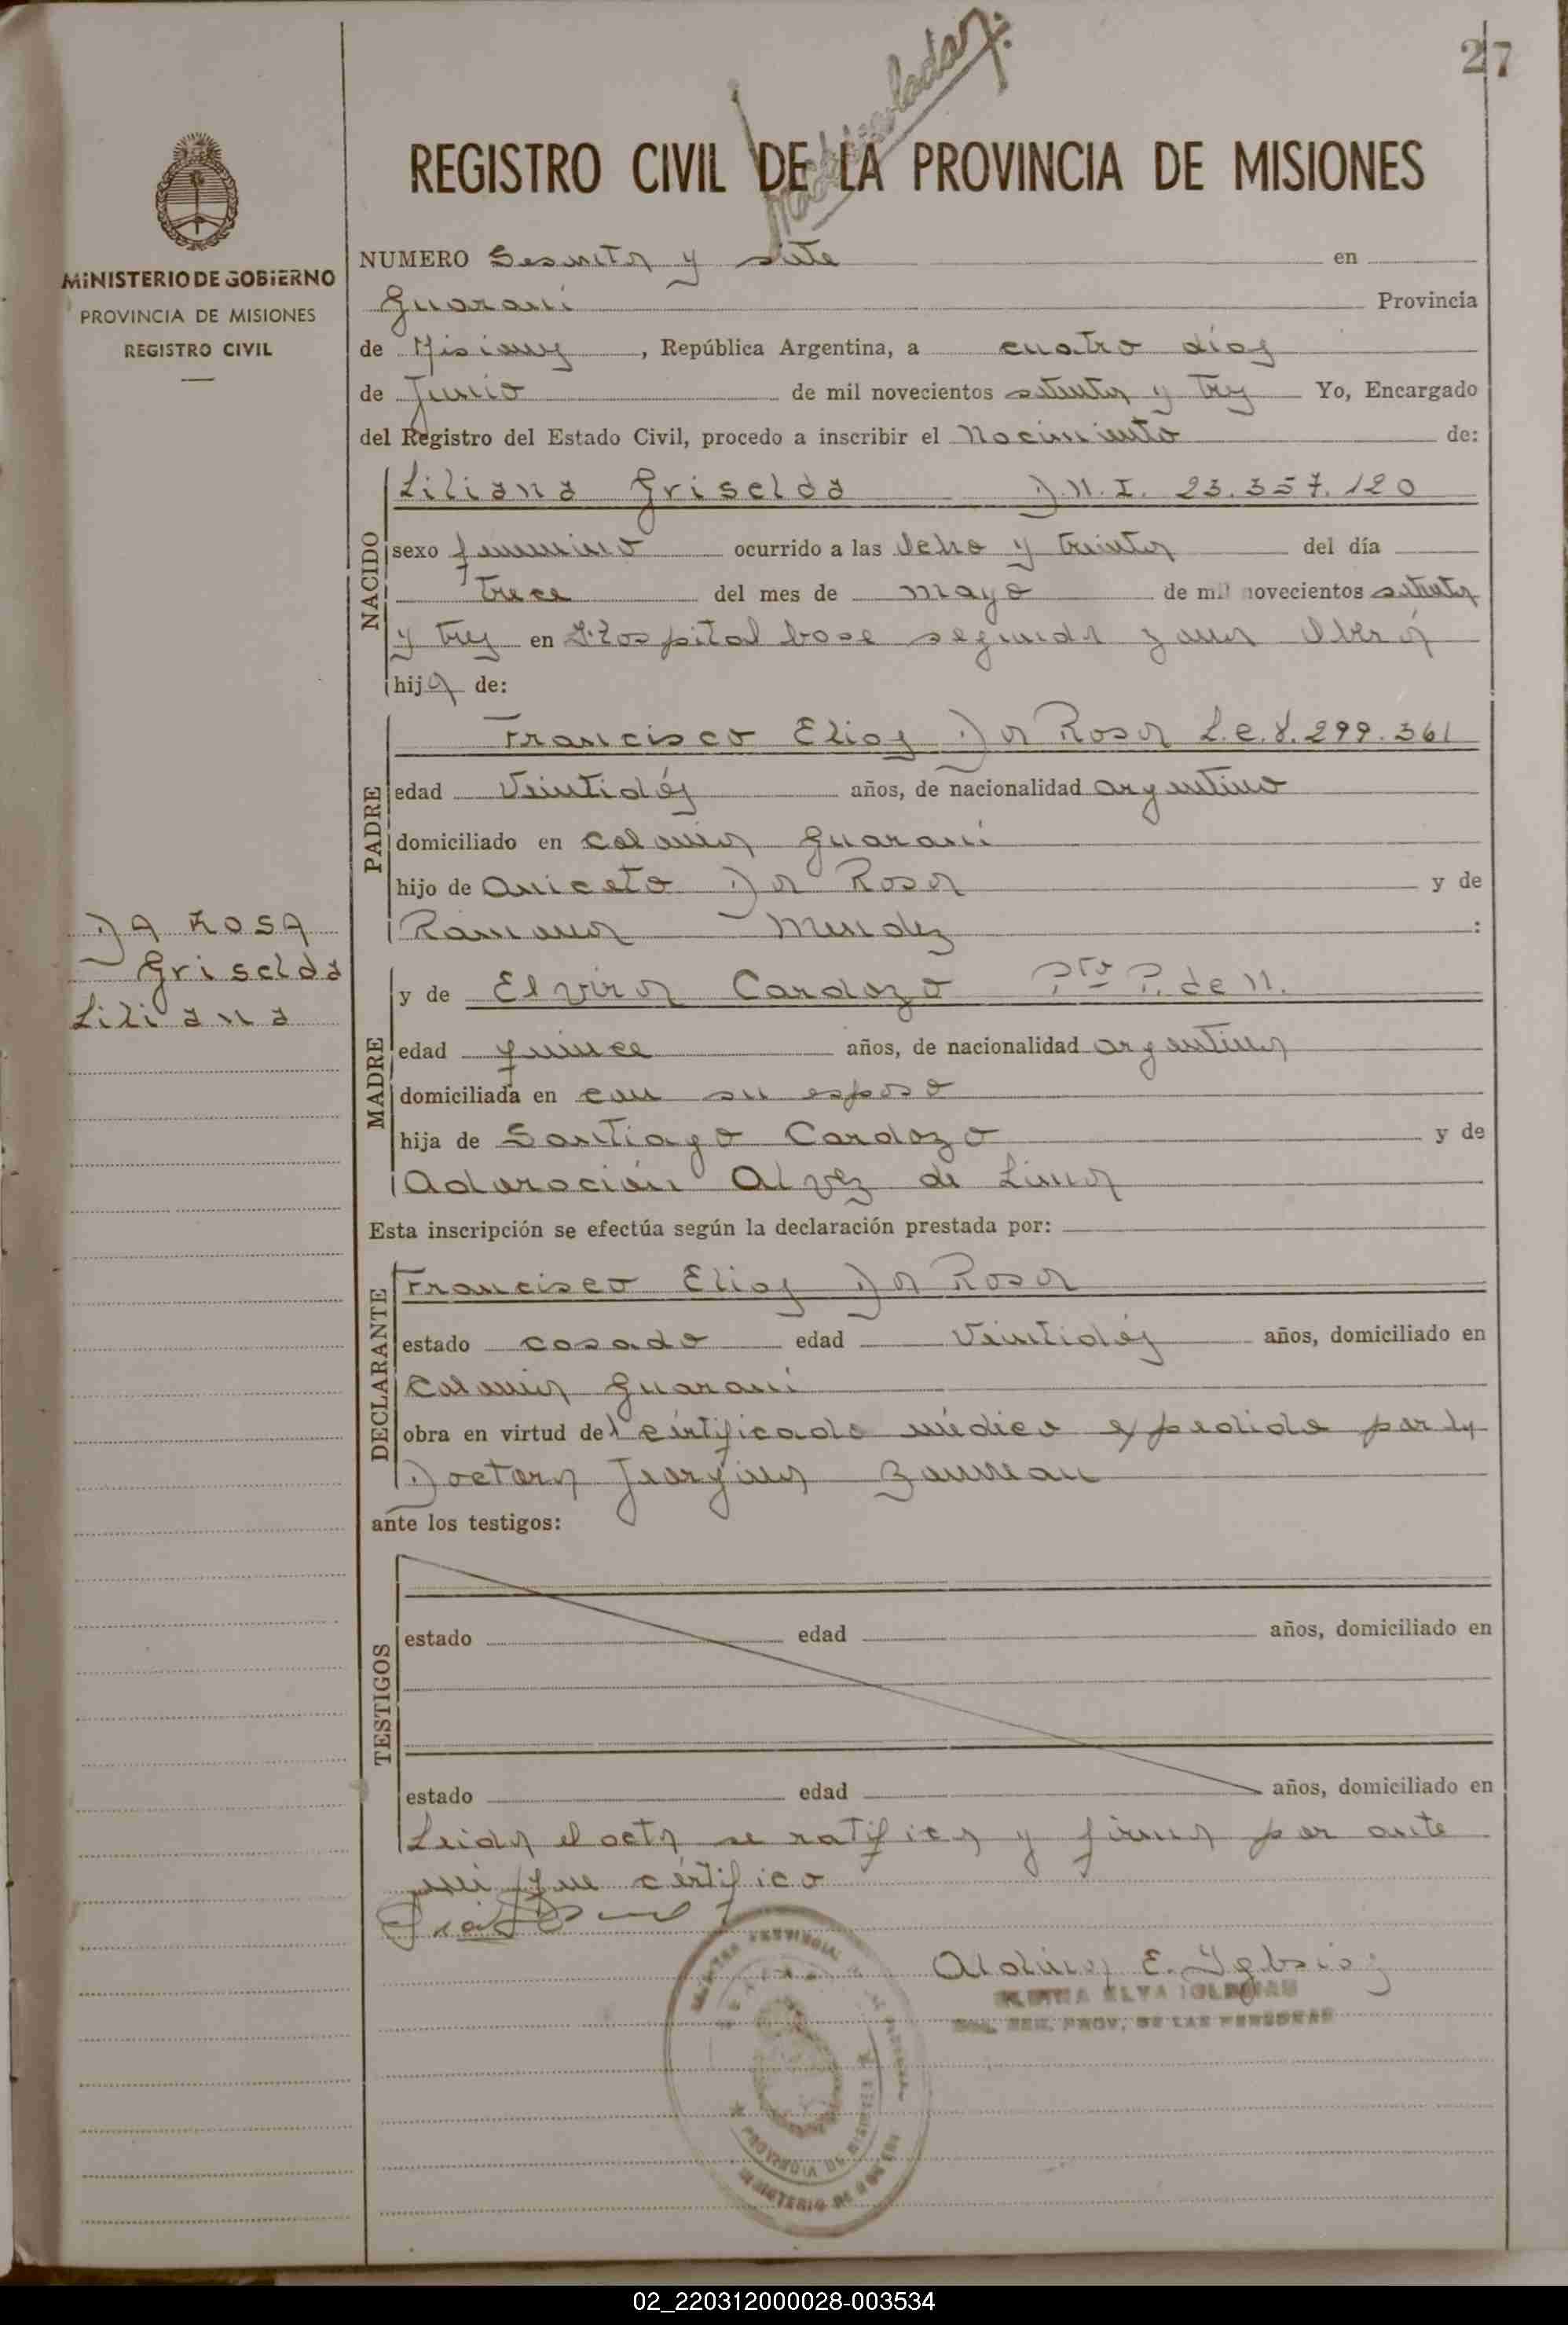 27
REGISTRO CIVIL DE LA PROVINCIA DE MISIONES
MINISTERIO DE GOBIERNO
PROVINCIA DE MISIONES
REGISTRO CIVIL
NUMERO Sesenta y siete en
Guaraní Provincia
de Misiones, República Argentina, a cuatro días
de Junio de mil novecientos setenta y tres Yo, Encargado
del Registro del Estado Civil, procedo a inscribir el Nacimiento de:
NACIDO
Liliana Griselda D.N.I. 23.357.120
sexo femenino ocurrido a las Ocho y treinta del día
trece del mes de mayo de mil novecientos setenta
y tres en Hospital base segunda zona Oberá
hija de:
PADRE
Francisco Elias Da Rosa L.e.8.299.361
edad Veintidós años, de nacionalidad argentino
domiciliado en Colonia Guaraní
hijo de Aniceto Da Rosa y de
Ramona Mendez :
DA ROSA
Griselda
Liliana
MADRE
y de Elvira Cardozo Pto P. de N.
edad quince años, de nacionalidad argentina
domiciliada en con su esposo
hija de Santiago Cardozo y de
Adoración Alvez de Lima
Esta inscripción se efectúa según la declaración prestada por:
DECLARANTE
Francisco Elias Da Rosa
estado casado edad Veintidós años, domiciliado en
Colonia Guaraní
obra en virtud del certificado médico expedido por la
Doctora
ante los testigos:
TESTIGOS
estado edad años, domiciliado en
estado edad años, domiciliado en
Leida el acta se ratifica y firma por ante
mi que certifico
Aldina E. Iglesias
PROVINCIA DE MISIONES
MINISTERIO DE GOBIERNO
02_220312000028-003534